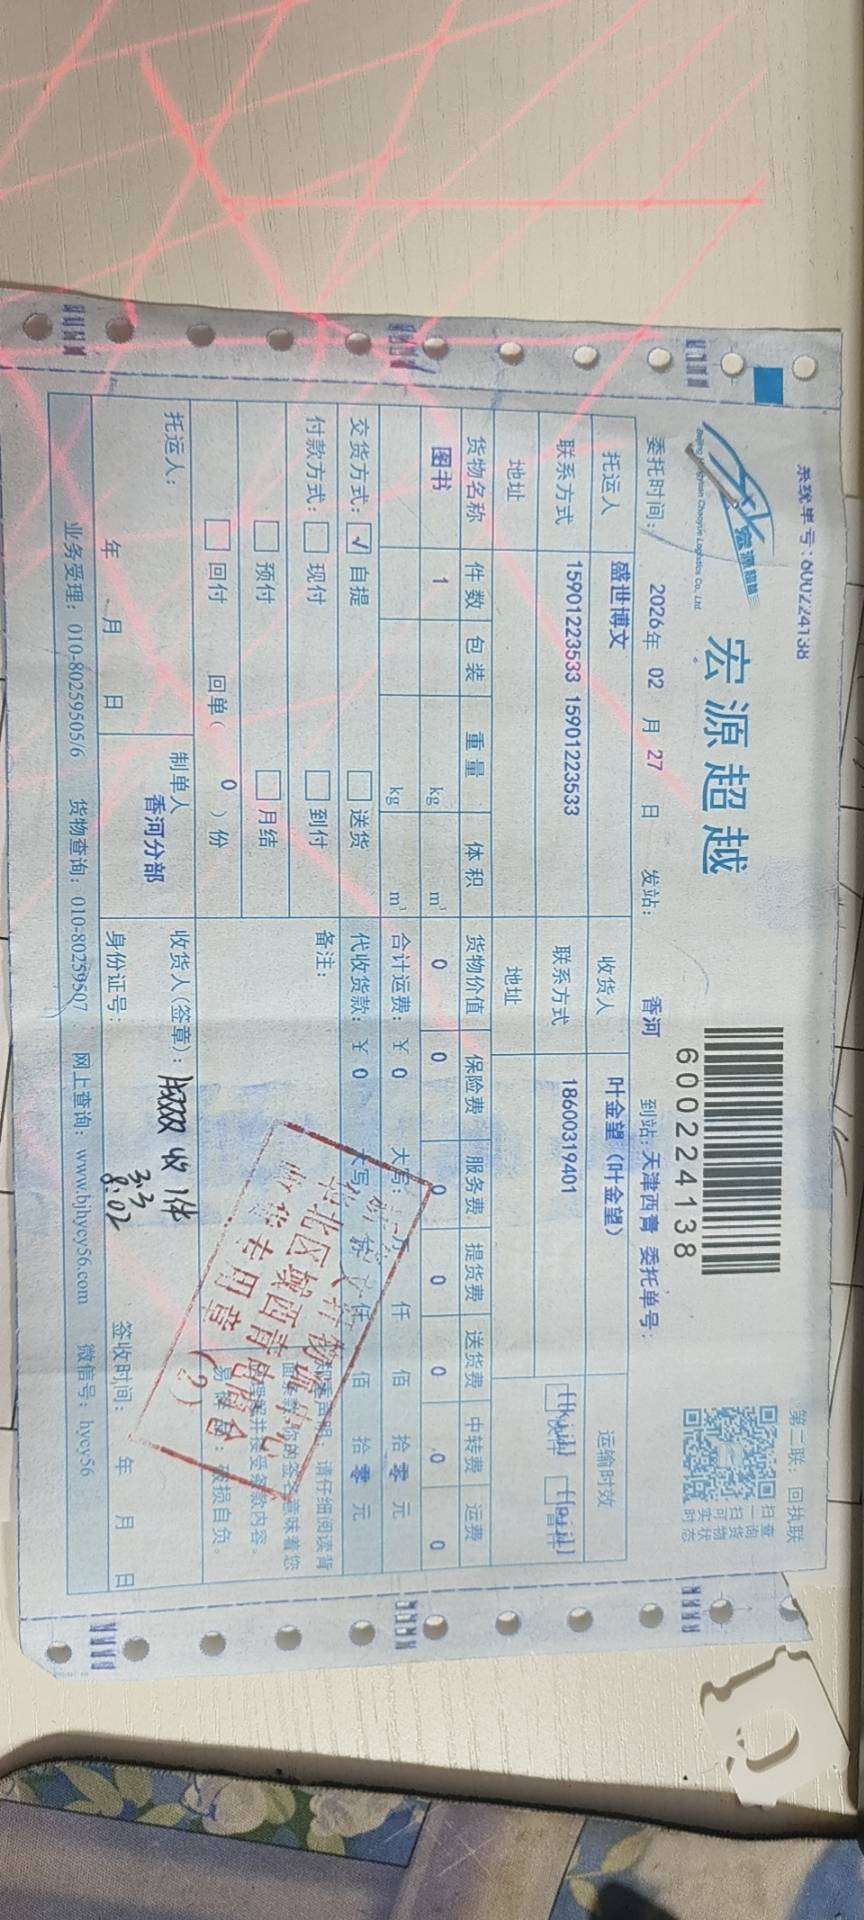 系统单号：600224138
第二联：回执联
宏源超越
Beijing Hongyuan Chaoyue Logistics Co., Ltd.
宏源超越
600224138
扫一扫可实时
查询货物状态
委托时间： 2026年 02 月 27 日 发站： 香河 到站：天津西青 委托单号：
托运人 盛世博文 收货人 叶金望（叶金望） 运输时效
联系方式 15901223533 15901223533 联系方式 18600319401
地址 地址
货物名称 件数 包装 重量 体积 货物价值 保险费 服务费 提货费 送货费 中转费 运费
图书 1 kg m³ 0 0 0 0 0 0 0
kg m³ 合计运费：￥ 0 大写： 仟 佰 拾 零 元
交货方式： ✓ 自提 送货 代收货款：￥ 0 大写 仟 佰 拾 零 元
付款方式： 现付 到付 备注：
预付 月结
回付 回单（ 0 ）份
请仔细阅读背
您的签名意味着您
并接受条款内容。
破损自负。
华北区域西青
收货专用章
(2)
托运人： 年 月 日
制单人 香河分部
收货人(签章)： 收1件
3.3
8:02
身份证号： 签收时间： 年 月 日
业务受理：010-80259505/6 货物查询：010-80259507 网上查询：www.bjhycy56.com 微信号：hycy56